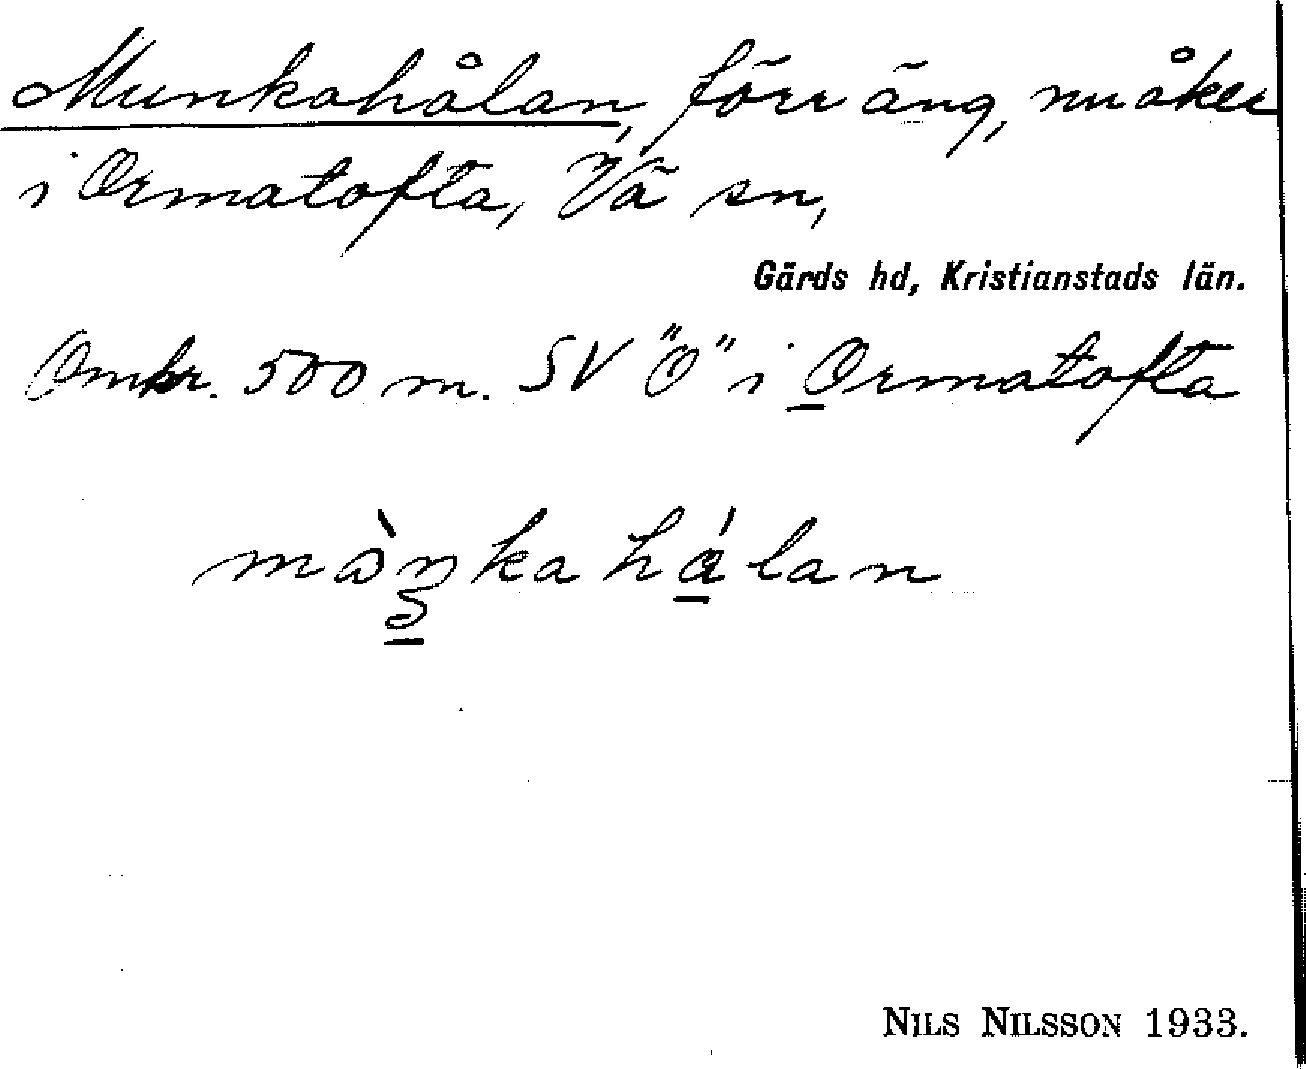 Munkahålan, förr äng, nu åker
i Ormatofta, Vä sn,
Gärds hd, Kristianstads län.
Omkr. 500 m. SV "O" i Ormatofta
NILS NILSSON 1933.